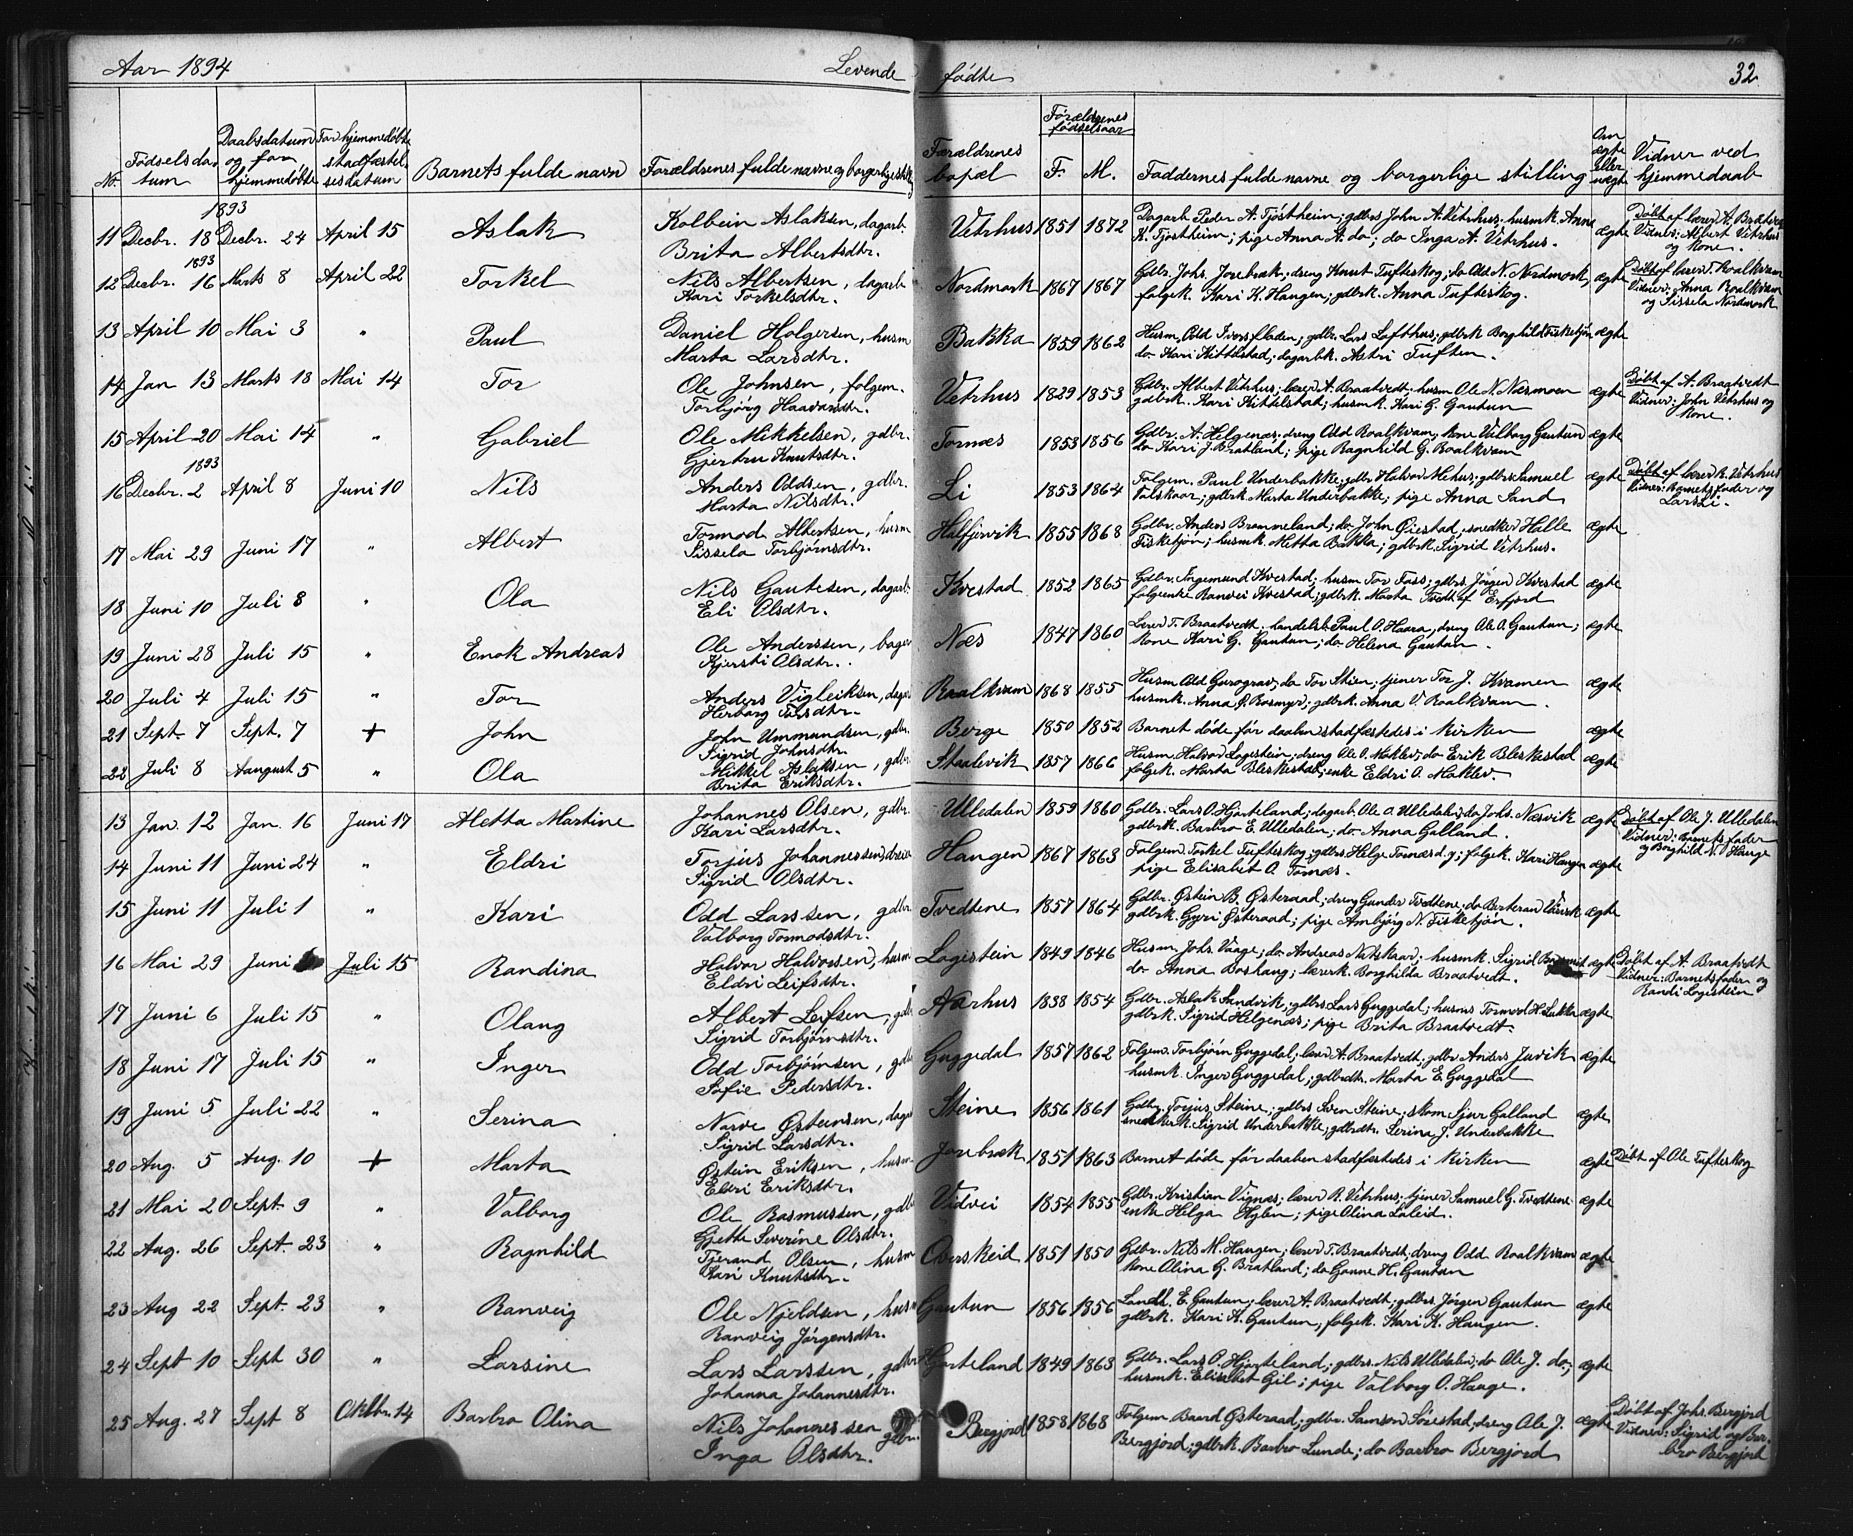 Aar 1894 Levende fødte 32
No. Fødselsdatum Daabsdatum og for hjemmedøbte For hjemmedøbte stadfæstelsesdatum Barnets fulde navn Forældrenes fulde navne og borgerlige Forældrenes bopæl Forældrenes fødselsaar F. M. Faddernes fulde navne og borgerlige stilling Om ægte eller uægte Vidner ved hjemmedaab
1893
11 Decbr. 18 Decbr. 24 April 15 Aslak Kolbein Aslaksen, dagarb. Vetrhus 1851 1872 Dagarb. Peder A. Tjøstheim; gdbrs John A. Vetrhus; husmk. Anna ægte Døbt af lærer A. Braatvedt
Brita Albertsdtr. K. Tjøstheim; pige Anna A. do; do Inga A. Vetrhus. Vidner: Albert Vetrhus og kone.
1893
12 Decbr. 16 Marts 8 April 22 Torkel Nils Albertsen, dagarb. Nordmork 1867 1867 Gdbr. Johs. Jorebræk; dreng Knut Tufteskog; do Odd N. Nordmork; ægte Døbt af lærer T. Roalkvam
Kari Torkelsdtr. folgek. Kari K. Haugen; gdbrk. Anna Tufteskog. Vidner: Anna Roalkvam og Sissela Nordmork
13 April 10 Mai 3 " Paul Daniel Holgersen, husm Bakka 1859 1862 Husm. Odd Ivarsfladen; gdbr. Lars Lofthus; gdbrk Borghild Fisketjøn ægte
Marta Larsdtr. do Kari Kittelstad; dagarbk. Metri Tuften.
14 Jan 13 Marts 18 Mai 14 Tor Ole Johnsen, folgem. Vetrhus 1829 1853 Gdbr. Albert Vetrhus; lærer A. Braatvedt; husm Ole N. Næsmoen ægte Døbt af A. Braatvedt
Torbjørg Haavardtr. gdbrk. Kari Kittelstad; husmk. Kari G. Gautun Vidner: John Vetrhus og kone.
15 April 20 Mai 14 " Gabriel Ole Mikkelsen, gdbr. Tornæs 1853 1856 Gdbr. A. Helgenæs; dreng Odd Roalkvam; kone Valborg Gautun ægte
Gjertru Knutsdtr. do Kari J. Bratland; pige Ragnhild G. Roalkvam
1893
16 Decbr. 2 April 8 Juni 10 Nils Anders Oddsen, gdbr. Li 1853 1864 Folgem. Paul Underbakke; gdbr. Halvor Mehus; gdbrs Samuel ægte Døbt af lærer R. Vetrhus
Marta Nilsdtr. gdbrk Marta Underbakke; pige Anna Sand Vidner: Barnets fader og Lars Li.
17 Mai 29 Juni 17 " Albert Tormod Albertsen, husm Halfjervik 1855 1868 Gdbr. Anders Brommeland; do John Øiestad; snedker Halle ægte
Sissela Torbjørnsdtr. Fisketjøn; husmk. Metta Bakka; gdbrk. Sigrid Vetrhus.
18 Juni 10 Juli 8 " Ola Nils Gautesen, dagarb. Kvestad 1852 1865 Gdbr. Ingemund Kvestad; husm Tor Foss; gdbrs. Jørgen Kvestad ægte
Eli Olsdtr. folgeenke Ranvei Kvestad; gdbrk. Marta Tvedt af Erfjord
19 Juni 28 Juli 15 " Enok Andreas Ole Anderssen, bager Næs 1847 1860 Lærer T. Braatvedt; handelsb. Paul O. Haara, dreng Ole O. Gautun; ægte
Kjersti Olsdtr. kone Kari G. Gautun; do Helena Gautun.
20 Juli 4 Juli 15 " Tor Anders Vigleiksen, dagarb Roalkvam 1868 1855 Husm Odd Gurograv; do Tor Stien; tjener Tor J. Kvamen ægte
Herborg Torsdtr. husmk. Anna O. Rosmyr; gdbrk. Anna V. Roalkvam.
21 Sept. 7 Sept. 7 + John John Ummundsen, gdbr. Berge 1850 1852 Barnet døde før daaben stadfæstedes i kirken ægte
Sigrid Johnsdtr.
22 Juli 8 Aaugust 5 " Ola Mikkel Aslaksen, gdbr. Staalevik 1857 1866 Husm. Halvor Logestein; dreng Ole O. Moklev; do Erik Bleskestad ægte
Brita Eriksdtr. folgek. Marta Bleskestad; enke Eldri O. Moklev.
13 Jan. 12 Jan. 16 Juni 17 Metta Martine Johannes Olsen, gdbr. Ulledalen 1859 1860 Gdbr. Lars O. Hjorteland; dagarb. Ole O. Ulledalen; do Johs. Næsvik ægte Døbt af Ole J. Ulledalen
Kari Larsdtr. gdbrk. Barbro E. Ulledalen; do Anna Galland. Vidner: Barnets fader og Borghild N. Hauge
14 Juni 11 Juni 24 " Eldri Torjus Johannessen, dreier Haugen 1867 1863 Folgem. Torkel Tufteskog; gdbrs. Helge Tornæs d.y.; folgek. Kari Haugen ægte
Sigrid Olsdtr. pige Elisabet O. Tornæs.
15 Juni 11 Juli 1 " Kari Odd Larssen, gdbr Tvedtene 1857 1864 Gdbr. Østein B. Østeraad; dreng Gunder Tvedtene; do Berteram Vasvik ægte
Valborg Tormodsdtr. gdbrk. Gyri Østeraad; pige Ambjørg N. Fisketjøn.
16 Mai 29 Juni Juli 15 Randina Halvor Halvorsen, husm Logestein 1849 1846 Husm. Johs. Vaage; do Andreas Natskaar; husmk. Sigrid ægte Døbt af A. Braatvedt
Eldri Leifsdtr. do Anna Boshaug; lærerk. Borghilda Braatvedt. Vidner: Barnets fader og Randi Logestein
17 Juni 6 Juli 15 " Olaug Albert Leifsen, gdbr Aarhus 1838 1854 Gdbr. Aslak Sandvik; gdbrs Lars Guggedal; husms Tormod H. Lukka ægte
Sigrid Torbjørnsdtr. gdbrk. Sigrid Helgenæs; pige Brita Braatvedt.
18 Juni 17 Juli 15 " Inger Odd Torbjørnsen, gdbr Guggedal 1857 1862 Folgem. Torbjørn Guggedal; lærer A. Braatvedt; gdbr Anders Juvik ægte
Sofie Pedersdtr. husmk. Inger Guggedal; gdbrdtr. Marta E. Guggedal
19 Juni 5 Juli 22 " Serina Narve Østeinsen, dagarb Steine 1856 1861 Gdbr. Torjus Steine; gdbrs Sven Steine; skom Sjur Galland ægte
Sigrid Larsdtr. snedkerk. Sigrid Underbakke; gdbrdtr. Serina J. Underbakke
20 Aug. 5 Aug. 10 + Marta Østein Eriksen, husm Jorebræk 1851 1863 Barnet døde før daaben stadfæstedes i kirken ægte Døbt af Ole Tufteskog
Eldri Eriksdtr.
21 Mai 20 Sept. 9 " Valborg Ole Rasmussen, gdbr Vidvei 1854 1855 Gdbr. Kristian Vignæs; lærer R. Vetrhus; tjener Samuel G. Tvedtene ægte
Gjette Severine Olsdtr. enke Helga Hylen; pige Olina Laleid.
22 Aug. 26 Sept. 23 " Ragnhild Tjerand Olsen, husm Overskeid 1851 1850 Gdbr. Nils M. Haugen; lærer T. Braatvedt; dreng Odd Roalkvam ægte
Kari Knutsdtr. kone Olina G. Bratland; do Gonne H. Gautun
23 Aug 22 Sept. 23 " Ranveig Ole Njeldsen, husm Gautun 1856 1856 Landh. E. Gautun; lærer A. Braatvedt; gdbrs Jørgen Gautun ægte
Ranveig Jørgensdtr. gdbrk. Kari A. Gautun; folgek. Kari K. Haugen.
24 Sept 10 Sept 30 " Larsine Lars Larssen, gdbr Hjorteland 1849 1863 Gdbr. Lars O. Hjorteland; gdbrs. Nils Ulledalen; do Ole J. do; ægte
Johanna Johannesdtr. husmk. Elisabet Gil; pige Valborg O. Hauge.
25 Aug. 27 Sept 8 Oktbr. 14 Barbro Olina Nils Johannessen gdbr. Bergjord 1858 1868 Folgem. Baard Østeraad; gdbr. Samson Sørestad; dreng Ole J. ægte Døbt af Johs. Bergjord
Inga Olsdtr. Bergjord; gdbrk. Barbro Lunde; do Barbro Bergjord Vidner: Sigrid og Barbro Bergjord